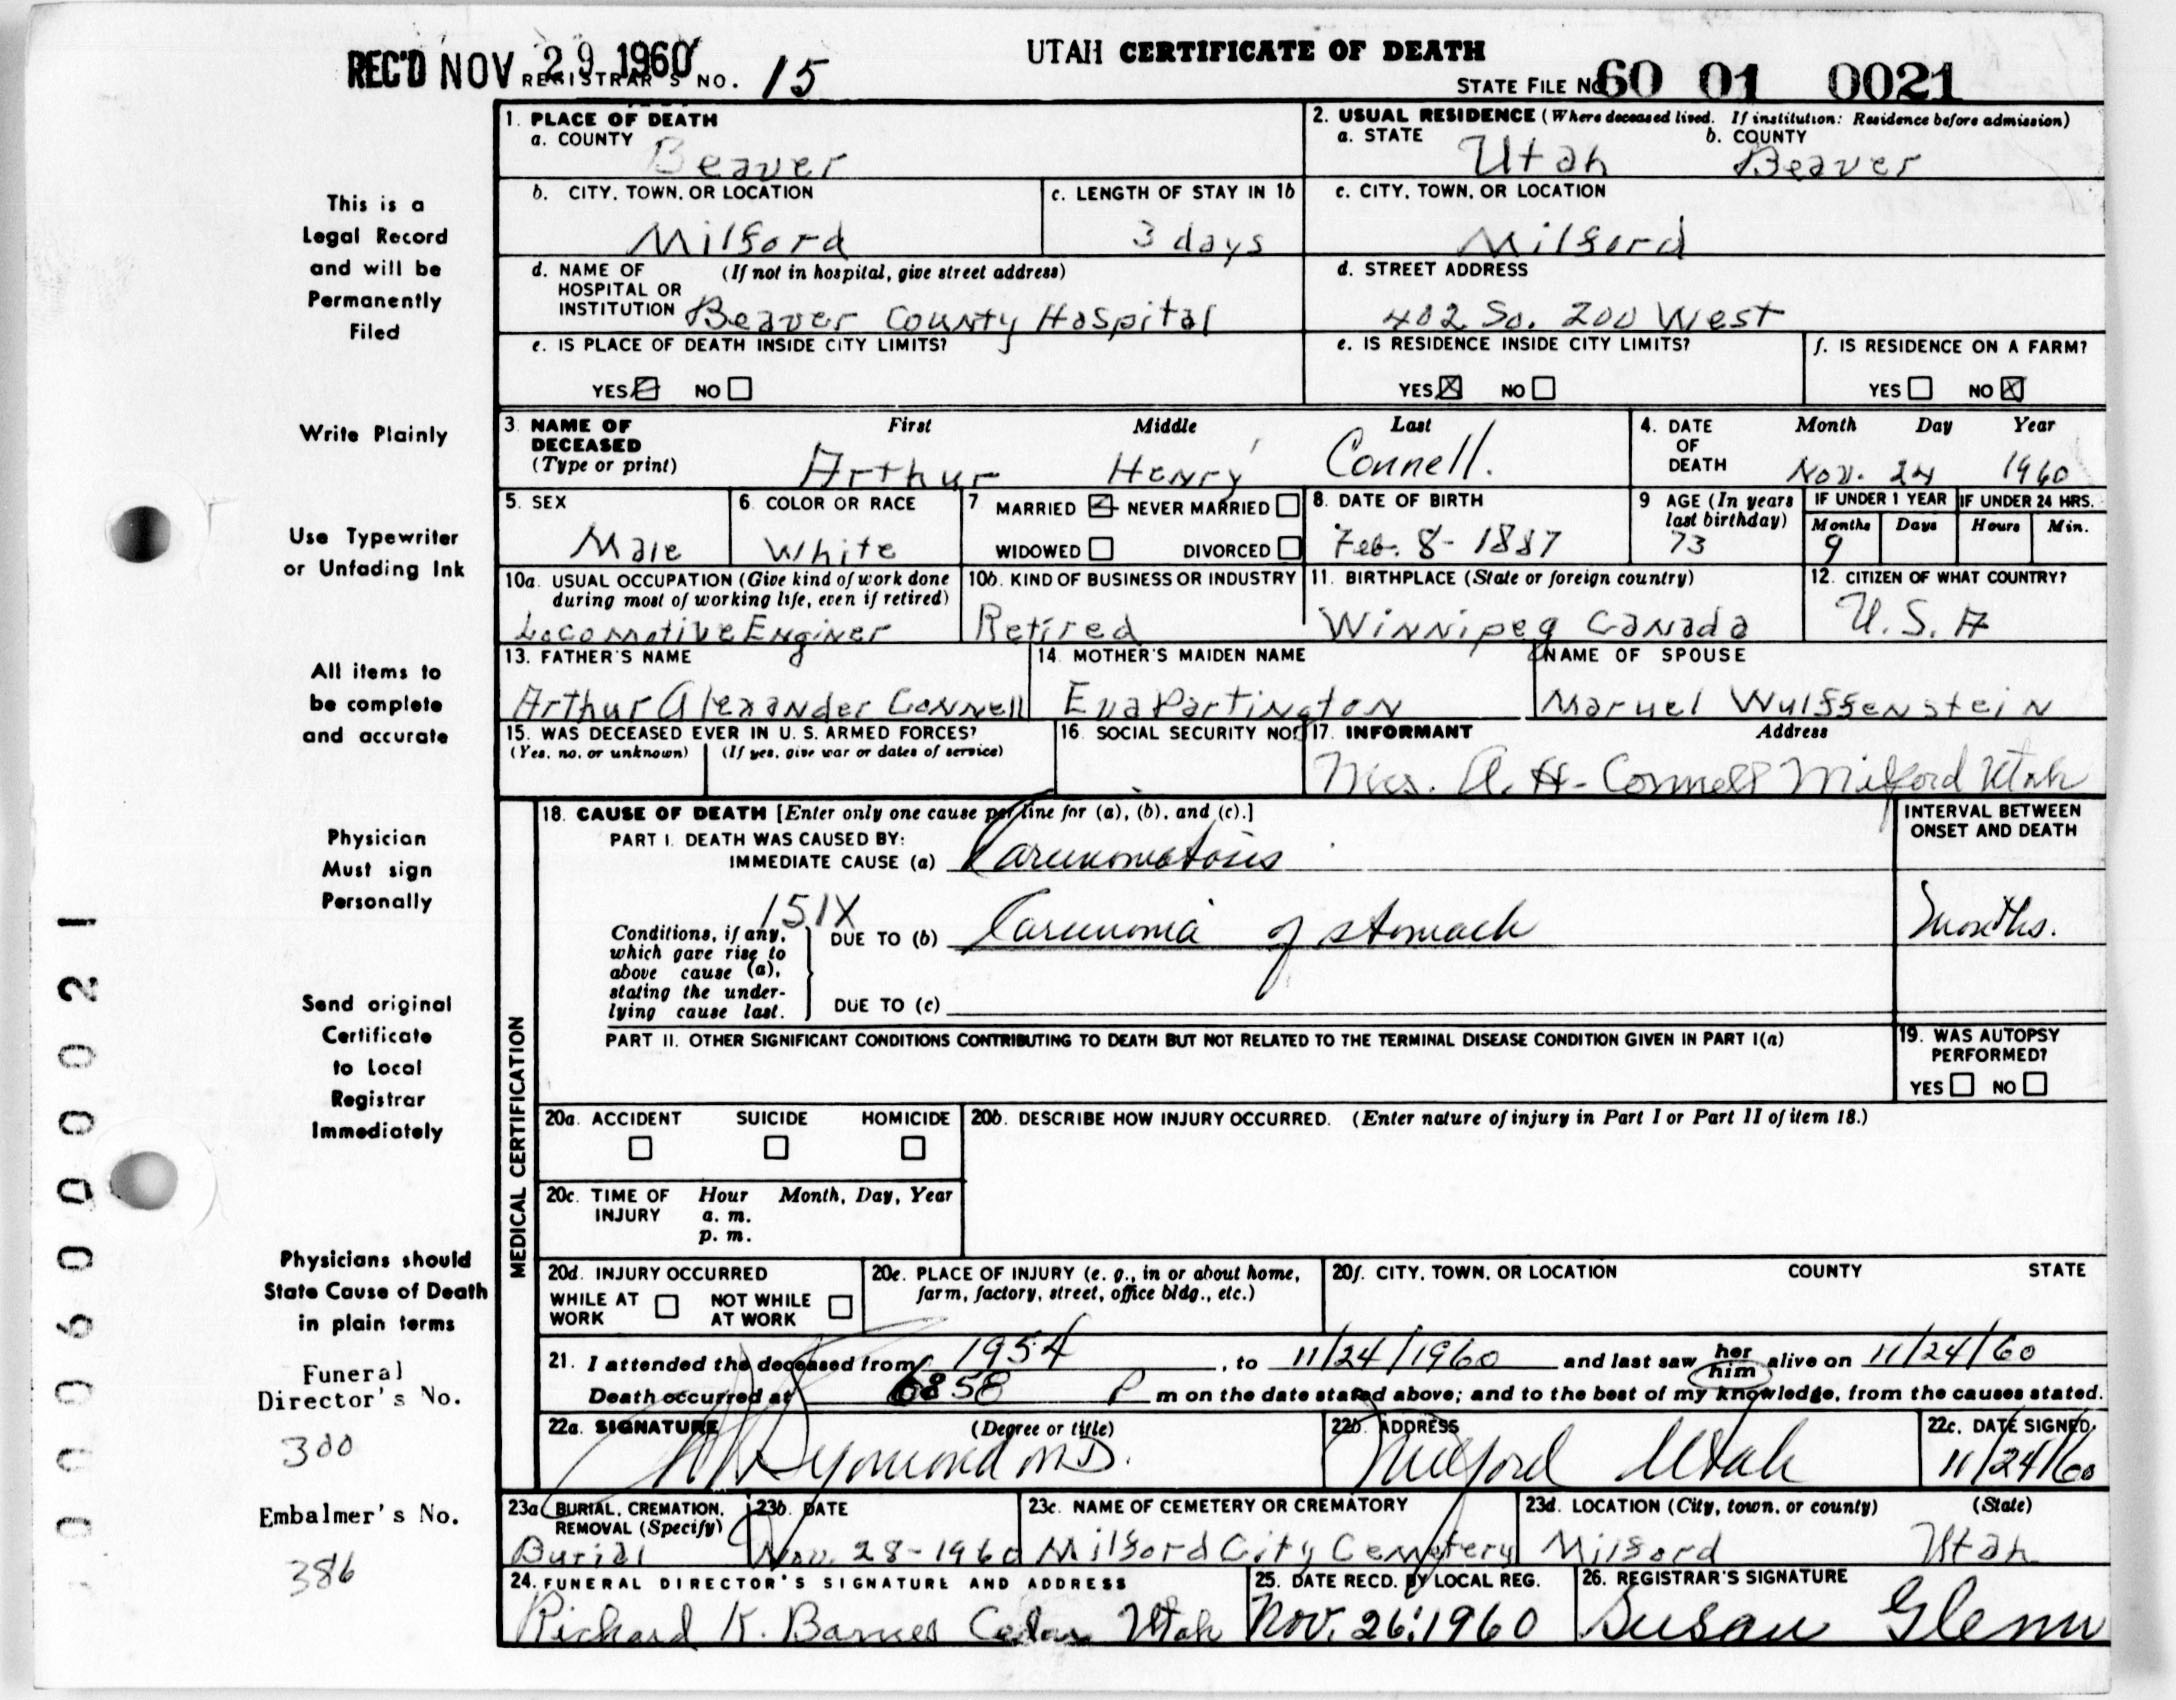 UTAH CERTIFICATE OF DEATH
REC'D NOV 29 1960 REGISTRAR'S NO. 15 STATE FILE NO. 60 01 0021
1. PLACE OF DEATH
a. COUNTY Beaver
2. USUAL RESIDENCE (Where deceased lived. If institution: Residence before admission)
a. STATE Utah b. COUNTY Beaver
b. CITY, TOWN, OR LOCATION Milford
c. LENGTH OF STAY IN 1b 3 days
c. CITY, TOWN, OR LOCATION Milford
d. NAME OF HOSPITAL OR INSTITUTION (If not in hospital, give street address) Beaver County Hospital
d. STREET ADDRESS 402 So. 200 West
e. IS PLACE OF DEATH INSIDE CITY LIMITS?
YES NO
e. IS RESIDENCE INSIDE CITY LIMITS?
YES X NO
f. IS RESIDENCE ON A FARM?
YES NO X
3. NAME OF DECEASED (Type or print)
First Middle Last
Arthur Henry Connell.
4. DATE OF DEATH
Month Day Year
Nov. 24 1960
5. SEX Male
6. COLOR OR RACE White
7 MARRIED NEVER MARRIED
WIDOWED DIVORCED
8. DATE OF BIRTH Feb. 8 - 1887
9 AGE (In years last birthday) 73
IF UNDER 1 YEAR IF UNDER 24 HRS.
Months Days Hours Min.
9
10a. USUAL OCCUPATION (Give kind of work done during most of working life, even if retired)
Locomotive Enginer
10b. KIND OF BUSINESS OR INDUSTRY Retired
11. BIRTHPLACE (State or foreign country) Winnipeg Canada
12. CITIZEN OF WHAT COUNTRY? U.S.A
13. FATHER'S NAME Arthur Alexander Connell
14. MOTHER'S MAIDEN NAME Eva Partington
NAME OF SPOUSE Maruel Wulffenstein
15. WAS DECEASED EVER IN U. S. ARMED FORCES?
(Yes, no, or unknown) (If yes, give war or dates of service)
16. SOCIAL SECURITY NO.
17. INFORMANT Address
Mrs. A. H. Connell Milford Utah
MEDICAL CERTIFICATION
18. CAUSE OF DEATH [Enter only one cause per line for (a), (b), and (c).]
INTERVAL BETWEEN ONSET AND DEATH
PART I. DEATH WAS CAUSED BY:
IMMEDIATE CAUSE (a) Carcinomatosis
151X
Conditions, if any, which gave rise to above cause (a), stating the underlying cause last.
DUE TO (b) Carcinoma of stomach months.
DUE TO (c)
PART II. OTHER SIGNIFICANT CONDITIONS CONTRIBUTING TO DEATH BUT NOT RELATED TO THE TERMINAL DISEASE CONDITION GIVEN IN PART I(a)
19. WAS AUTOPSY PERFORMED?
YES NO
20a. ACCIDENT SUICIDE HOMICIDE
20b. DESCRIBE HOW INJURY OCCURRED. (Enter nature of injury in Part I or Part II of item 18.)
20c. TIME OF INJURY Hour Month, Day, Year
a. m.
p. m.
20d. INJURY OCCURRED
WHILE AT WORK NOT WHILE AT WORK
20e. PLACE OF INJURY (e. g., in or about home, farm, factory, street, office bldg., etc.)
20f. CITY, TOWN, OR LOCATION COUNTY STATE
21. I attended the deceased from 1954, to 11/24/1960 and last saw her him alive on 11/24/60
Death occurred at 6:58 P m on the date stated above; and to the best of my knowledge, from the causes stated.
22a. SIGNATURE (Degree or title)
Symond M.D.
22b. ADDRESS Milford Utah
22c. DATE SIGNED 11/24/60
23a BURIAL, CREMATION, REMOVAL (Specify) Burial
23b. DATE Nov. 28-1960
23c. NAME OF CEMETERY OR CREMATORY Milford City Cemetery
23d. LOCATION (City, town, or county) (State)
Milford Utah
24. FUNERAL DIRECTOR'S SIGNATURE AND ADDRESS
Richard K. Barnes Cedar Utah
25. DATE RECD. BY LOCAL REG. Nov. 26, 1960
26. REGISTRAR'S SIGNATURE Susan Glenn
This is a
Legal Record
and will be
Permanently
Filed
Write Plainly
Use Typewriter
or Unfading Ink
All items to
be complete
and accurate
Physician
Must sign
Personally
Send original
Certificate
to Local
Registrar
Immediately
Physicians should
State Cause of Death
in plain terms
Funeral
Director's No.
300
Embalmer's No.
386
000600021